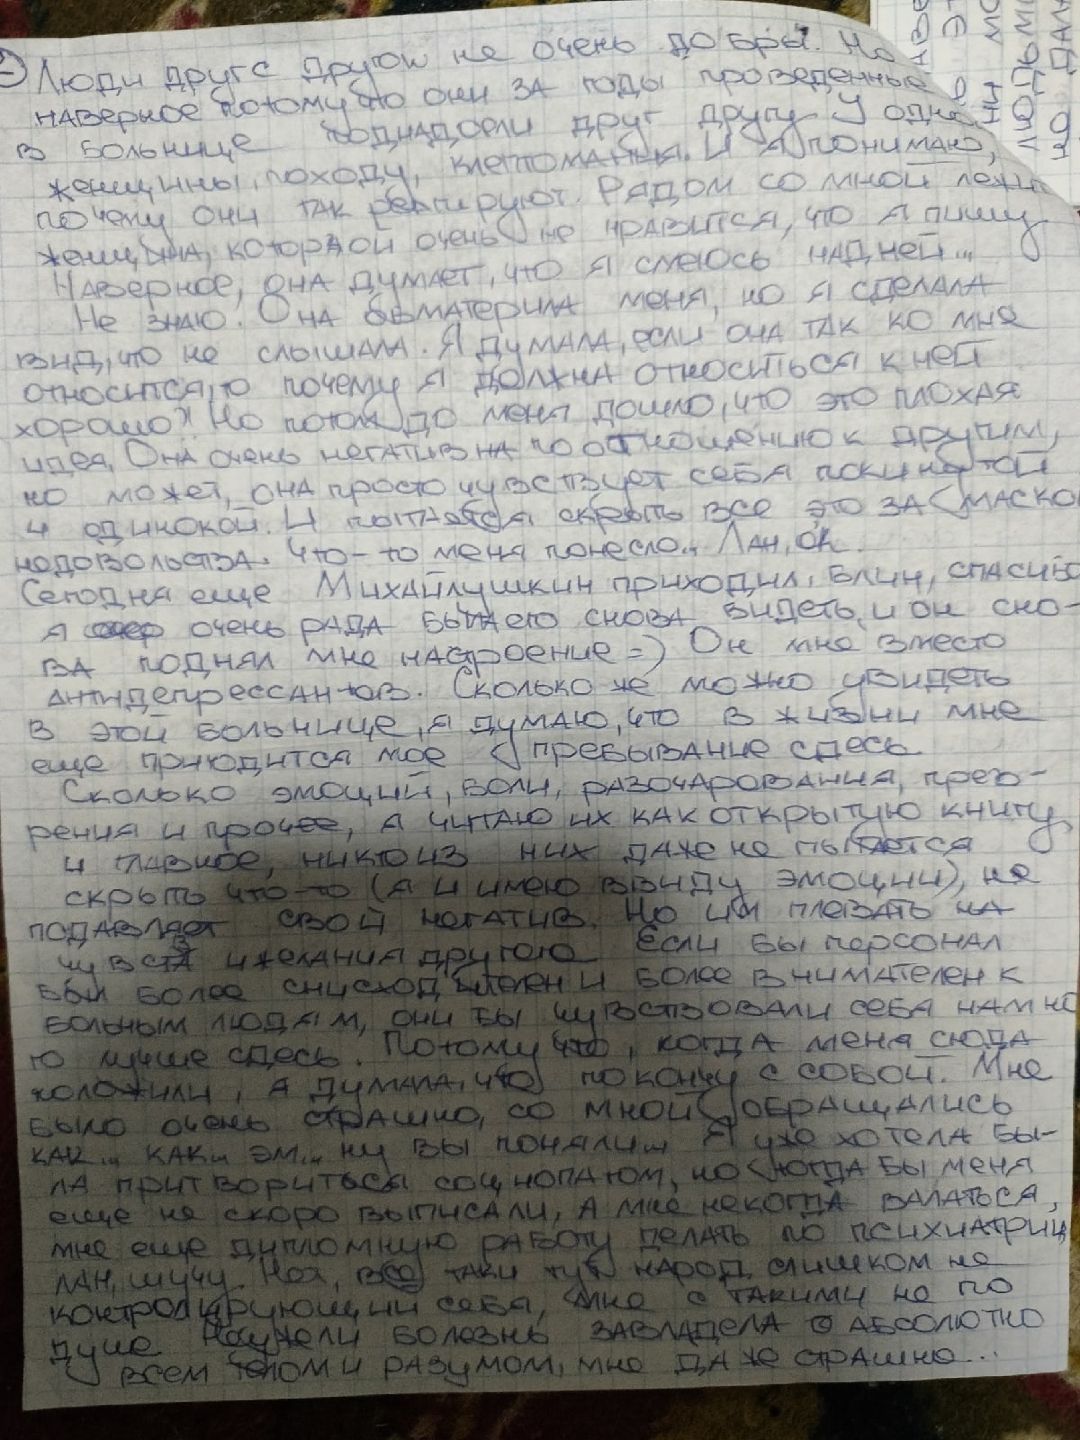 Люди друг с другом не очень добры. Но
наверное потому что они за годы проведенные
в больнице поднадоели друг другу. У одной
женщины, походу, клептомания. И я понимаю,
почему они так реагируют. Рядом со мной лежит
женщина, которой очень не нравится, что я пишу
Наверное, она думает, что я смеюсь над ней...
Не знаю. Она обматерила меня, но я сделала
вид, что не слышала. Я думала, если она так ко мне
относится, то почему я должна относиться к ней
хорошо? Но потом до меня дошло, что это плохая
идея. Она очень негативна по отношению к другим,
но может, она просто чувствует себя покинутой
и одинокой. И пытается скрыть все это за маской
недовольства. Что-то меня понесло.. Лан, ок.
Сегодня еще Михайлушкин приходил. Блин, спасибо
я очень рада была его снова видеть, и он сно-
ва поднял мне настроение =) Он мне вместо
антидепрессантов. Сколько же можно увидеть
в этой больнице, я думаю, что в жизни мне
еще пригодится мое пребывание сдесь
Сколько эмоций, боли, разочарования, през-
рения и прочее, я читаю их как открытую книгу
и главное, никто из них даже не пытается
скрыть что-то (я и имею ввиду эмоции), не
подавляет свой негатив. Но им плевать на
чувства и желания другого Если бы персонал
был более снисходителен и более внимателен к
больным людям, они бы чувствовали себя намно
го лучше сдесь. Потому что, когда меня сюда
положили, я думала, что покончу с собой. Мне
было очень страшно, со мной обращались
как... как.. эм... ну вы поняли... Я уже хотела бы-
ла притвориться социопатом, но тогда бы меня
еще не скоро выписали, а мне некогда валаться,
мне еще дипломную работу делать по психиатрии
лан, шучу. Не, все таки тут народ слишком не
контролирующий себя, мне с такими не по
душе Неужели болезнь завладела абсолютно
всем телом и разумом, мне даже страшно...